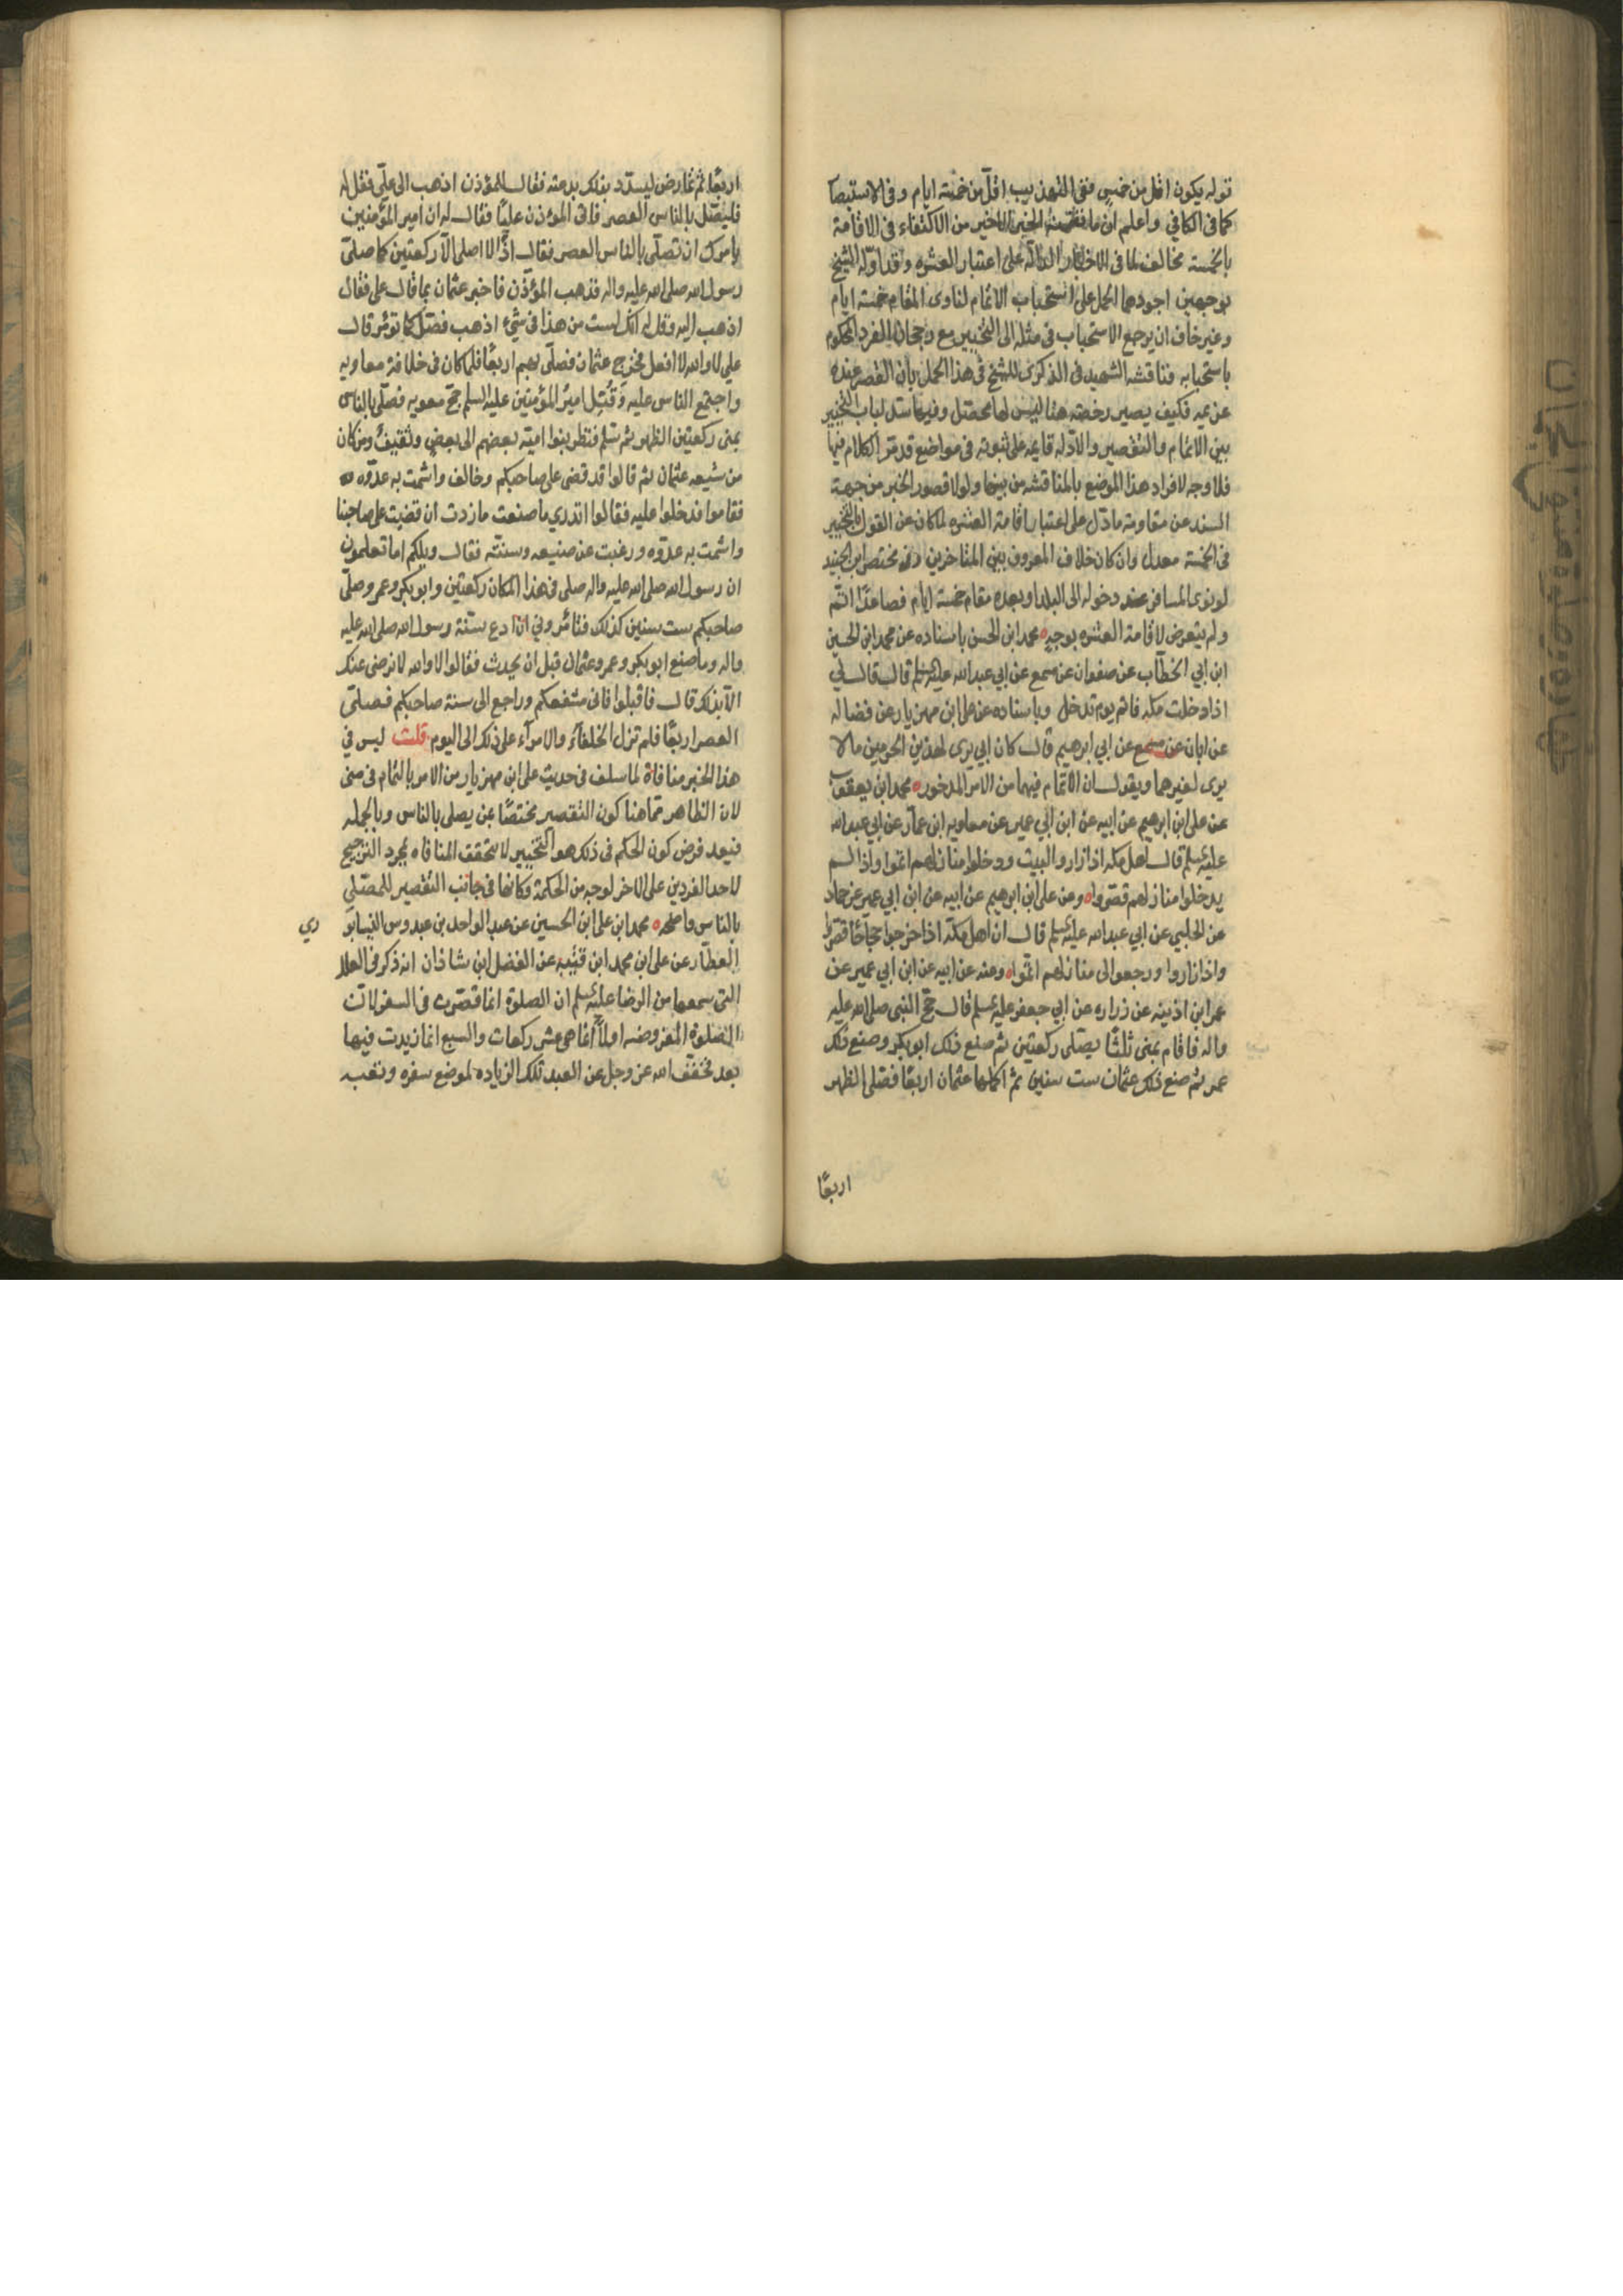 قوله يكون اقل من خمس ففى التهذيب اقل من خمسة ايام وفى الاستبصا
كما فى الكافي واعلم ان ما تضمنه الخبر الاخير من الاكتفاء فى الاقامة
بالخمسة مخالف لما فى الاخبار الدالة على اعتبار العشره وقد اوله الشيخ
بوجهين اجودهما الحمل على استحباب الاتمام لناوى المقام خمسة ايام
وغير خاف ان يرجع الاستحباب فى مثله الى التخيير مع رجحان الفرد المحكوم
باستحبابه فناقشه الشهيد فى الذكرى للشيخ فى هذا الحمل بان القصر عنده
عزيمه فكيف يصير رخصة هنا ليس لها محصل وفيها سد لباب التخيير
بين الاتمام والتقصير والادله قايمه على ثبوته فى مواضع قد مر الكلام فيها
فلا وجه لافراد هذا الموضع بالمناقشه من بينها ولولا قصور الخبر من جهة
السند عن مقاومة ما دل على اعتبار اقامة العشره لما كان عن القول بالتخيير
فى الخمسة معدل وان كان خلاف المعروف بين المتاخرين وفى مختصر ابن الجنيد
لو نوى المسافر عند دخوله الى البلد او بعده مقام خمسة ايام فصاعدًا اتم
ولم يتعرض لاقامة العشره بوجه محمد ابن الحسن باسناده عن محمد ابن الحسين
ابن ابي الخطاب عن صفوان عن مسمع عن ابي عبد الله عليه السلم قال قال لي
اذا دخلت مكه فاتم يوم تدخل وباسناده عن على ابن مهزيار عن فضاله
عن ابان عن مسمع عن ابي ابرهيم قال كان ابي يرى لهذين الحرمين مالا
يرى لغيرهما ويقول ان الاتمام فيهما من الامر المذخور محمد ابن يعقوب
عن على ابن ابرهيم عن ابيه عن ابن ابي عمير عن معاويه ابن عمار عن ابي عبد الله
عليه السلم قال اهل مكه اذا زاروا البيت ودخلوا منازلهم اتموا واذا لم
يدخلوا منازلهم قصروا وعن على ابن ابرهيم عن ابيه عن ابن ابي عمير عن حماد
عن الحلبي عن ابي عبد الله عليه السلم قال ان اهل مكة اذا خرجوا حجاجًا قصروا
واذا زاروا ورجعوا الى منازلهم اتموا وعنه عن ابيه عن ابن ابي عمير عن
عمر ابن اذينه عن زراره عن ابي جعفر عليه السلم قال حج النبى صلى الله عليه
واله فاقام بمنى ثلثًا يصلى ركعتين ثم صنع ذلك ابو بكر وصنع ذلك
عمر ثم صنع ذلك عثمان ست سنين ثم اكملها عثمان اربعًا فصلى الظهر
اربعًا
اربعًا ثم تمارض ليسدد بذلك بدعته فقال للمؤذن اذهب الى على فقل له
فليصل بالناس العصر فاتى المؤذن عليًا فقال له ان امير المؤمنين
يامرك ان تصلى بالناس العصر فقال اذًا لا اصلى الا ركعتين كما صلى
رسول الله صلى الله عليه واله فذهب المؤذن فاخبر عثمان بما قال على فقال
اذهب اليه وقل له انك لست من هذا فى شيء اذهب فصل كما تؤمر قال
علي لا والله لا افعل فخرج عثمان فصلى بهم اربعًا فلما كان فى خلافة معاويه
واجتمع الناس عليه وقُتِل امير المؤمنين عليه السلم حج معويه فصلى بالناس
بمنى ركعتين الظهر ثم سلم فنظر بنوا اميه بعضهم الى بعض وثقيف ومن كان
من شيعه عثمان ثم قالوا قد قضى على صاحبكم وخالف واشمت به عدوه
فقاموا فدخلوا عليه فقالوا اتدري ما صنعت ما زدت ان قضيت على صاحبنا
واشمت به عدوه ورغبت عن صنيعه وسنته فقال ويلكم اما تعلمون
ان رسول الله صلى الله عليه واله صلى فى هذا المكان ركعتين وابو بكر وعمر وصلى
صاحبكم ست سنين كذلك فتامروني ان ادع سنة رسول الله صلى الله عليه
واله وما صنع ابو بكر وعمر وعثمان قبل ان يحدث فقالوا لا والله لا نرضى عنك
الا بذلك قال فاقبلوا فانى مشفعكم وراجع الى سنة صاحبكم فصلى
العصر اربعًا فلم تزل الخلفاء والامرآء على ذلك الى اليوم قلت ليس في
هذا الخبر منافاة لما سلف فى حديث على ابن مهزيار من الامر بالتمام فى منى
لان الظاهر مما هنا كون التقصير مختصًا بمن يصلى بالناس وبالجمله
فبعد فرض كون الحكم فى ذلك هو التخيير لا تتحقق المنافاه بمجرد الترجيح
لاحد الفردين على الاخر لوجه من الحكمة وكانها فى جانب التقصير للمصلي
بالناس واضحه محمد ابن على ابن الحسين عن عبد الواحد بن عبدوس النيسابو
ري
العطار عن على ابن محمد ابن قتيبه عن الفضل ابن شاذان انه ذكر فى العلل
التى سمعها من الرضا عليه السلم ان الصلوة انما قصرت فى السفر لان
الصلوة المفروضه اولاً انما هى عشر ركعات والسبع انما زيدت فيها
بعد فخفف الله عز وجل عن العبد تلك الزياده لموضع سفره وتعبه